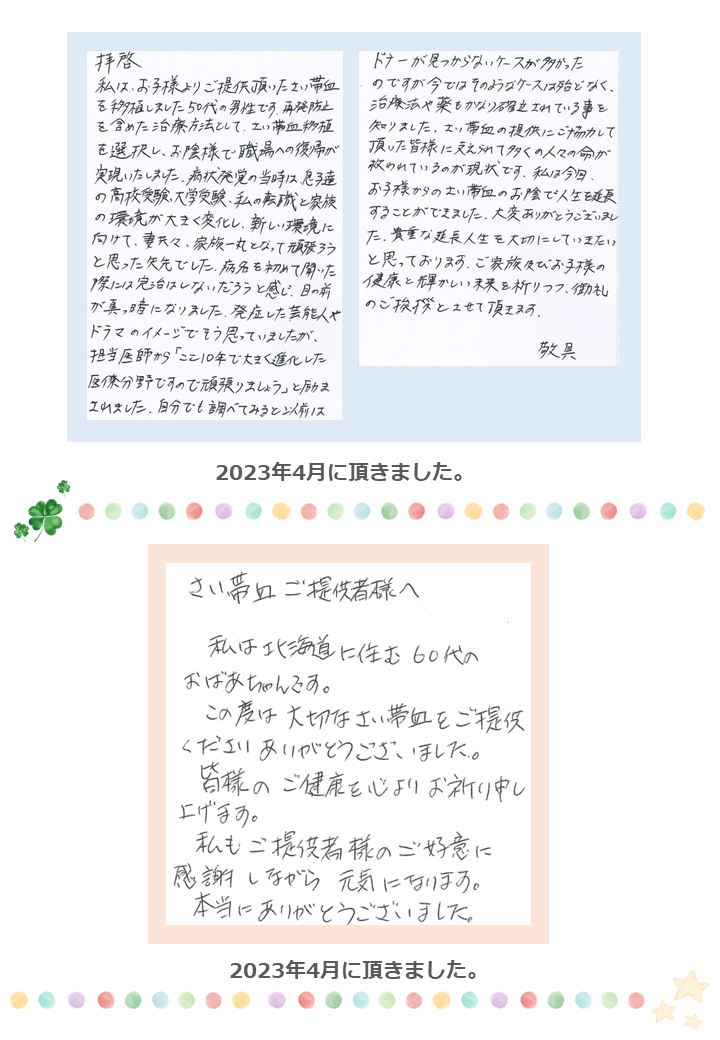 拝啓
私は、お子様よりご提供頂いたさい帯血
を移植しました50代の男性です。再発防止
を含めた治療方法として、さい帯血移植
を選択し、お陰様で職場への復帰が
実現いたしました。病状発覚の当時は、息子達
の高校受験、大学受験、私の転職と家族
の環境が大きく変化し、新しい環境に
向けて、妻共々、家族一丸となって頑張ろう
と思った矢先でした。病名を初めて聞いた
際には完治はしないだろうと感じ、目の前
が真っ暗になりました。発症した芸能人や
ドラマのイメージでそう思っていましたが、
担当医師から「ここ10年で大きく進化した
医療分野ですので頑張りましょう」と励ま
されました。自分でも調べてみると以前は
ドナーが見つからないケースが多かった
のですが今ではそのようなケースは殆どなく、
治療法や薬もかなり確立されている事を
知りました。さい帯血の提供にご協力して
頂いた皆様に支えられて多くの人々の命が
救われているのが現状です。私は今回、
お子様からのさい帯血のお陰で人生を延長
することができました。大変ありがとうございまし
た。貴重な延長人生を大切にしていきたい
と思っております。ご家族及びお子様の
健康と輝かしい未来を祈りつつ、御礼
のご挨拶とさせて頂きます。
敬具
2023年4月に頂きました。
さい帯血 ご提供者様へ
私は北海道に住む60代の
おばあちゃんです。
この度は大切なさい帯血をご提供
くださいありがとうございました。
皆様のご健康を心よりお祈り申し
上げます。
私もご提供者様のご好意に
感謝しながら元気になります。
本当にありがとうございました。
2023年4月に頂きました。